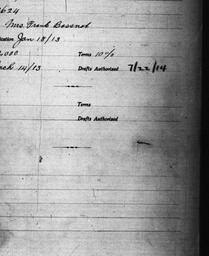 624
Mrs. Frank Bossnot
ication Jan 18/13
,000 Terms 10%
rch 14/13 Drafts Authorized 7/22/14
Terms
Drafts Authorized